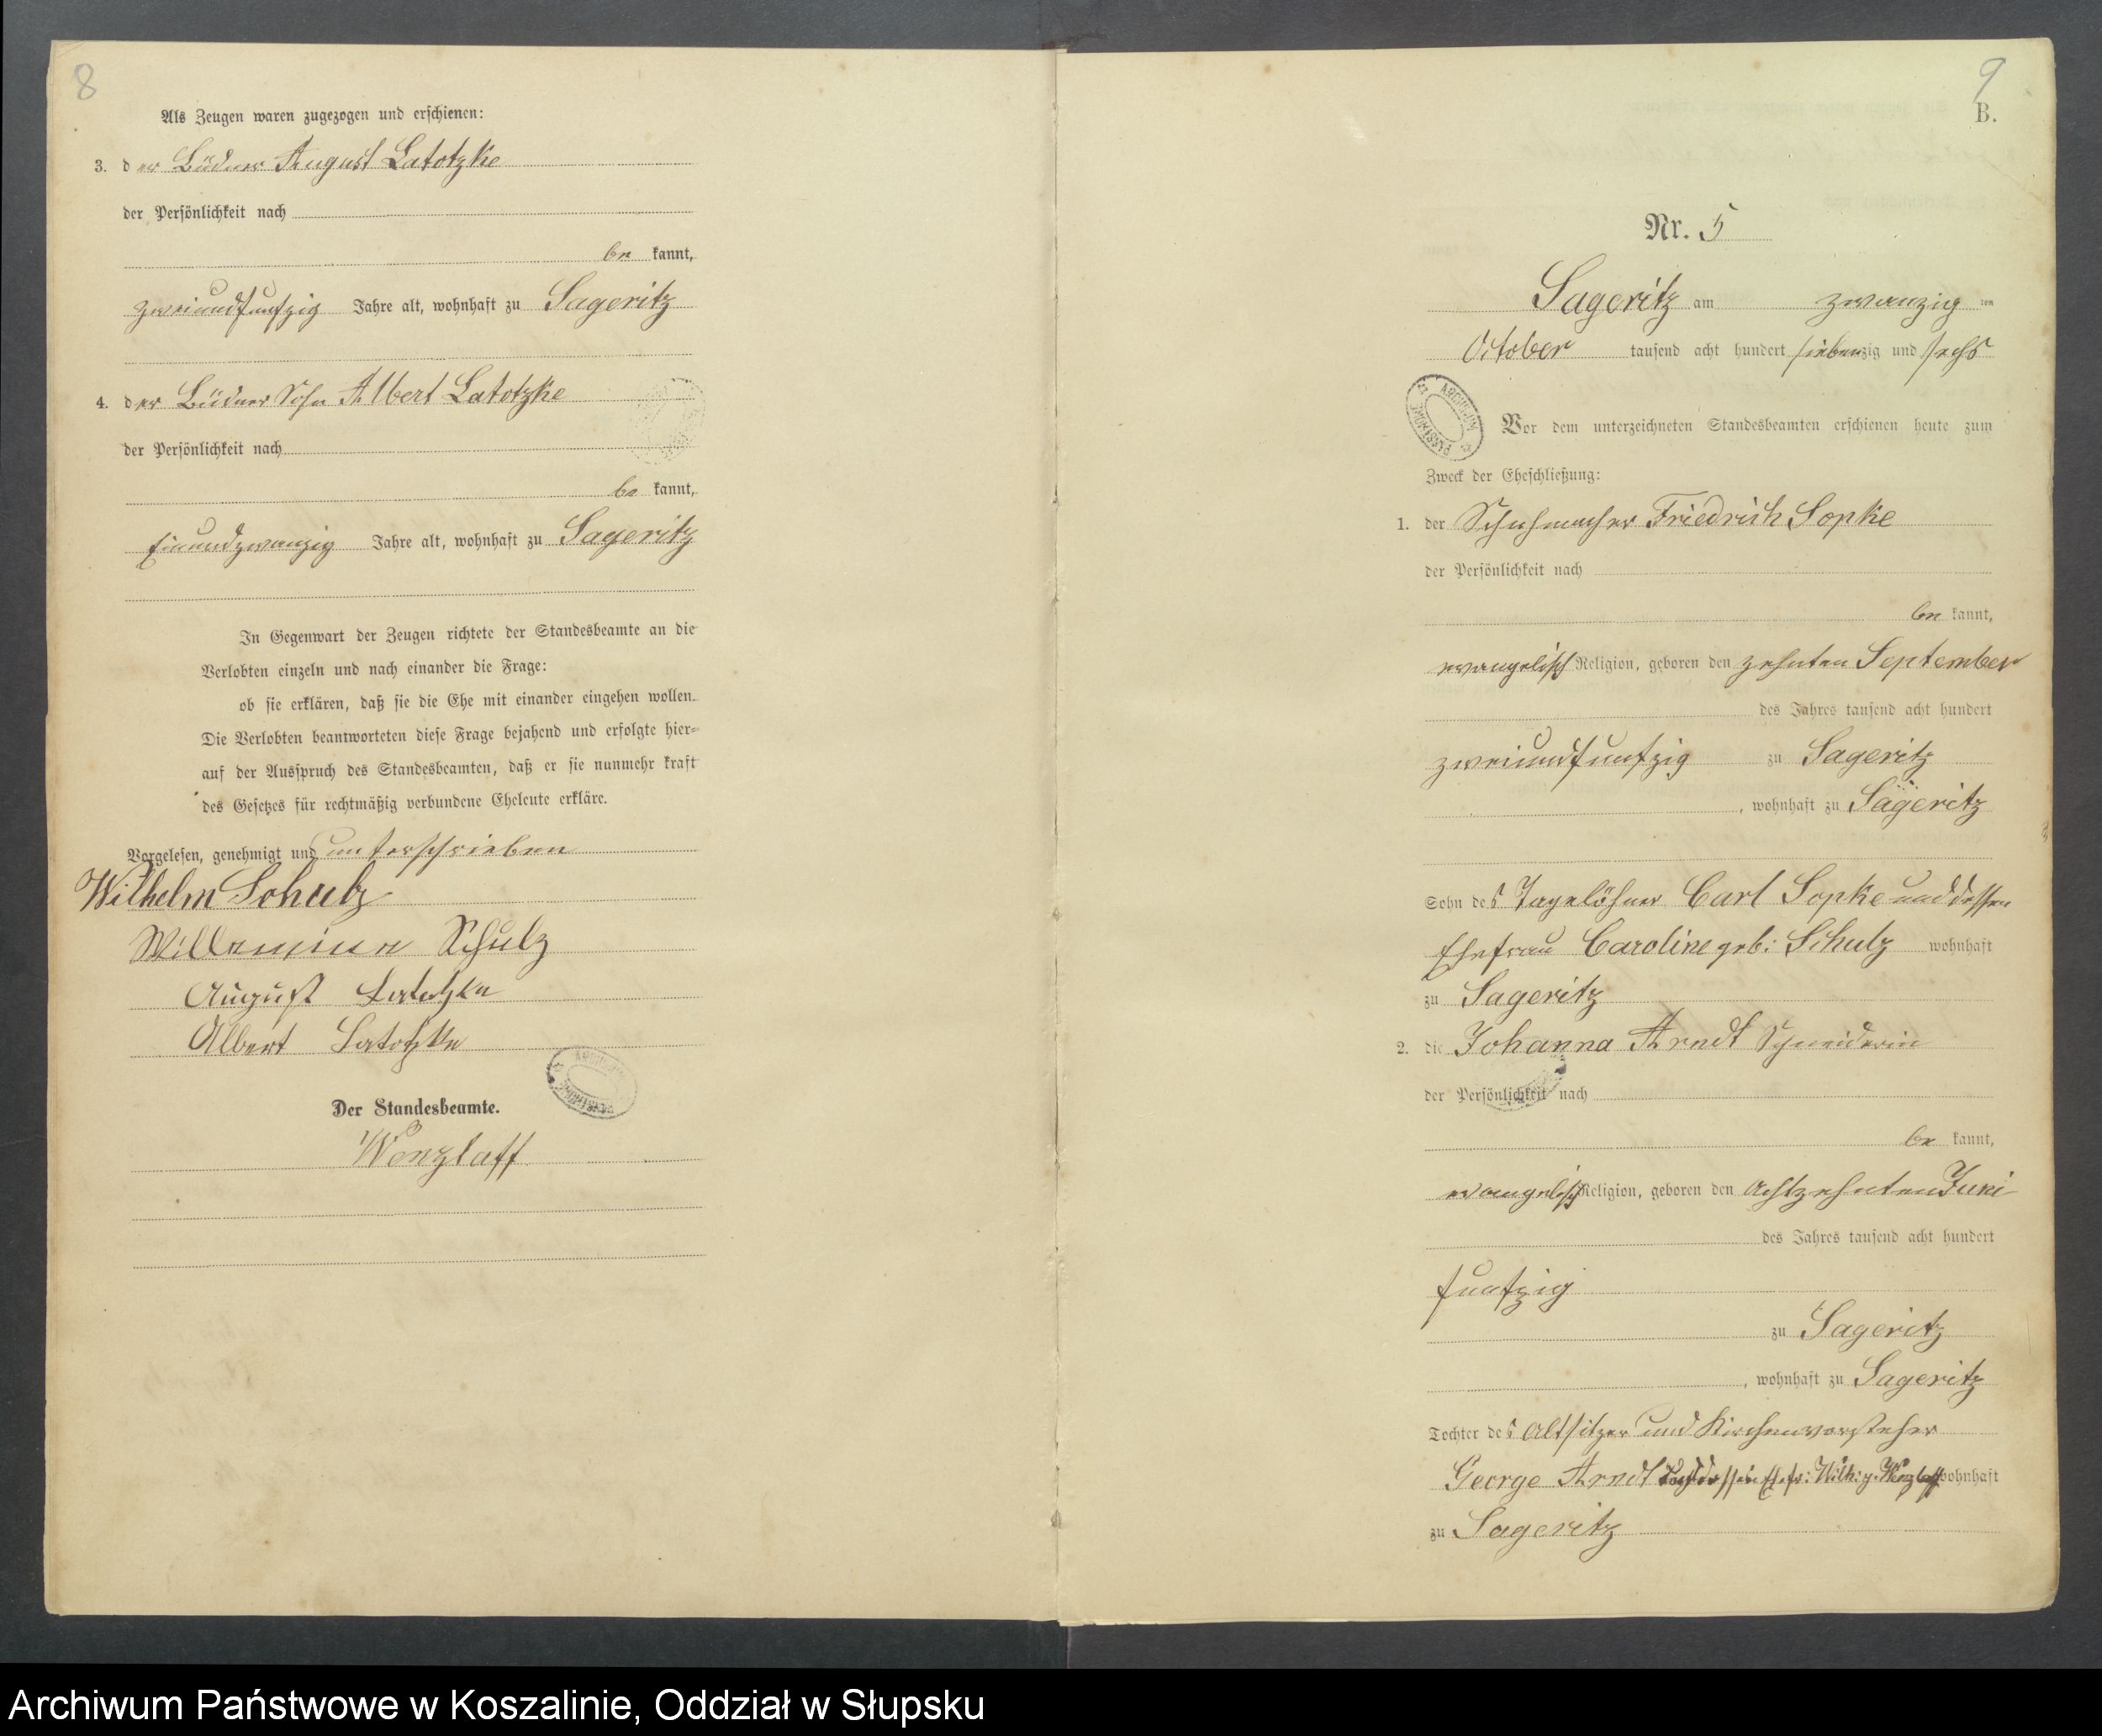 8
Als Zeugen waren zugezogen und erschienen:
3. der Büdner August Latotzke
der Persönlichkeit nach
be kannt,
zweiundfunfzig Jahre alt, wohnhaft zu Sageritz
4. der Büdner Sohn Albert Latotzke
der Persönlichkeit nach
be kannt,
Einundzwanzig Jahre alt, wohnhaft zu Sageritz
In Gegenwart der Zeugen richtete der Standesbeamte an die
Verlobten einzeln und nach einander die Frage:
ob sie erklären, daß sie die Ehe mit einander eingehen wollen.
Die Verlobten beantworteten diese Frage bejahend und erfolgte hier-
auf der Ausspruch des Standesbeamten, daß er sie nunmehr kraft
des Gesetzes für rechtmäßig verbundene Eheleute erkläre.
Vorgelesen, genehmigt und unterschrieben
Wilhelm Schulz
Willemine Schulz
August Latotzke
Albert Latotzke
Der Standesbeamte.
Wenzlaff
9
B.
Nr. 5
Sageritz am zwanzig ten
October tausend acht hundert siebenzig und sechs
Vor dem unterzeichneten Standesbeamten erschienen heute zum
Zweck der Eheschließung:
1. der Schuhmacher Friedrich Sopke
der Persönlichkeit nach
be kannt,
evangelisch Religion, geboren den zehnten September
des Jahres tausend acht hundert
zweiundfunfzig zu Sageritz
, wohnhaft zu Sageritz
Sohn des Tagelöhner Carl Sopke und dessen
Ehefrau Caroline geb: Schulz wohnhaft
zu Sageritz
2. die Johanna Arndt Schneiderin
der Persönlichkeit nach
be kannt,
evangelisch Religion, geboren den Achtzehnten Juni
des Jahres tausend acht hundert
funfzig
zu Sageritz
, wohnhaft zu Sageritz
Tochter des Altsitzer und Kirchenvorsteher
George Arndt und dessen Ehefr: Wilh: g. Wenzlaff wohnhaft
zu Sageritz
Archiwum Państwowe w Koszalinie, Oddział w Słupsku